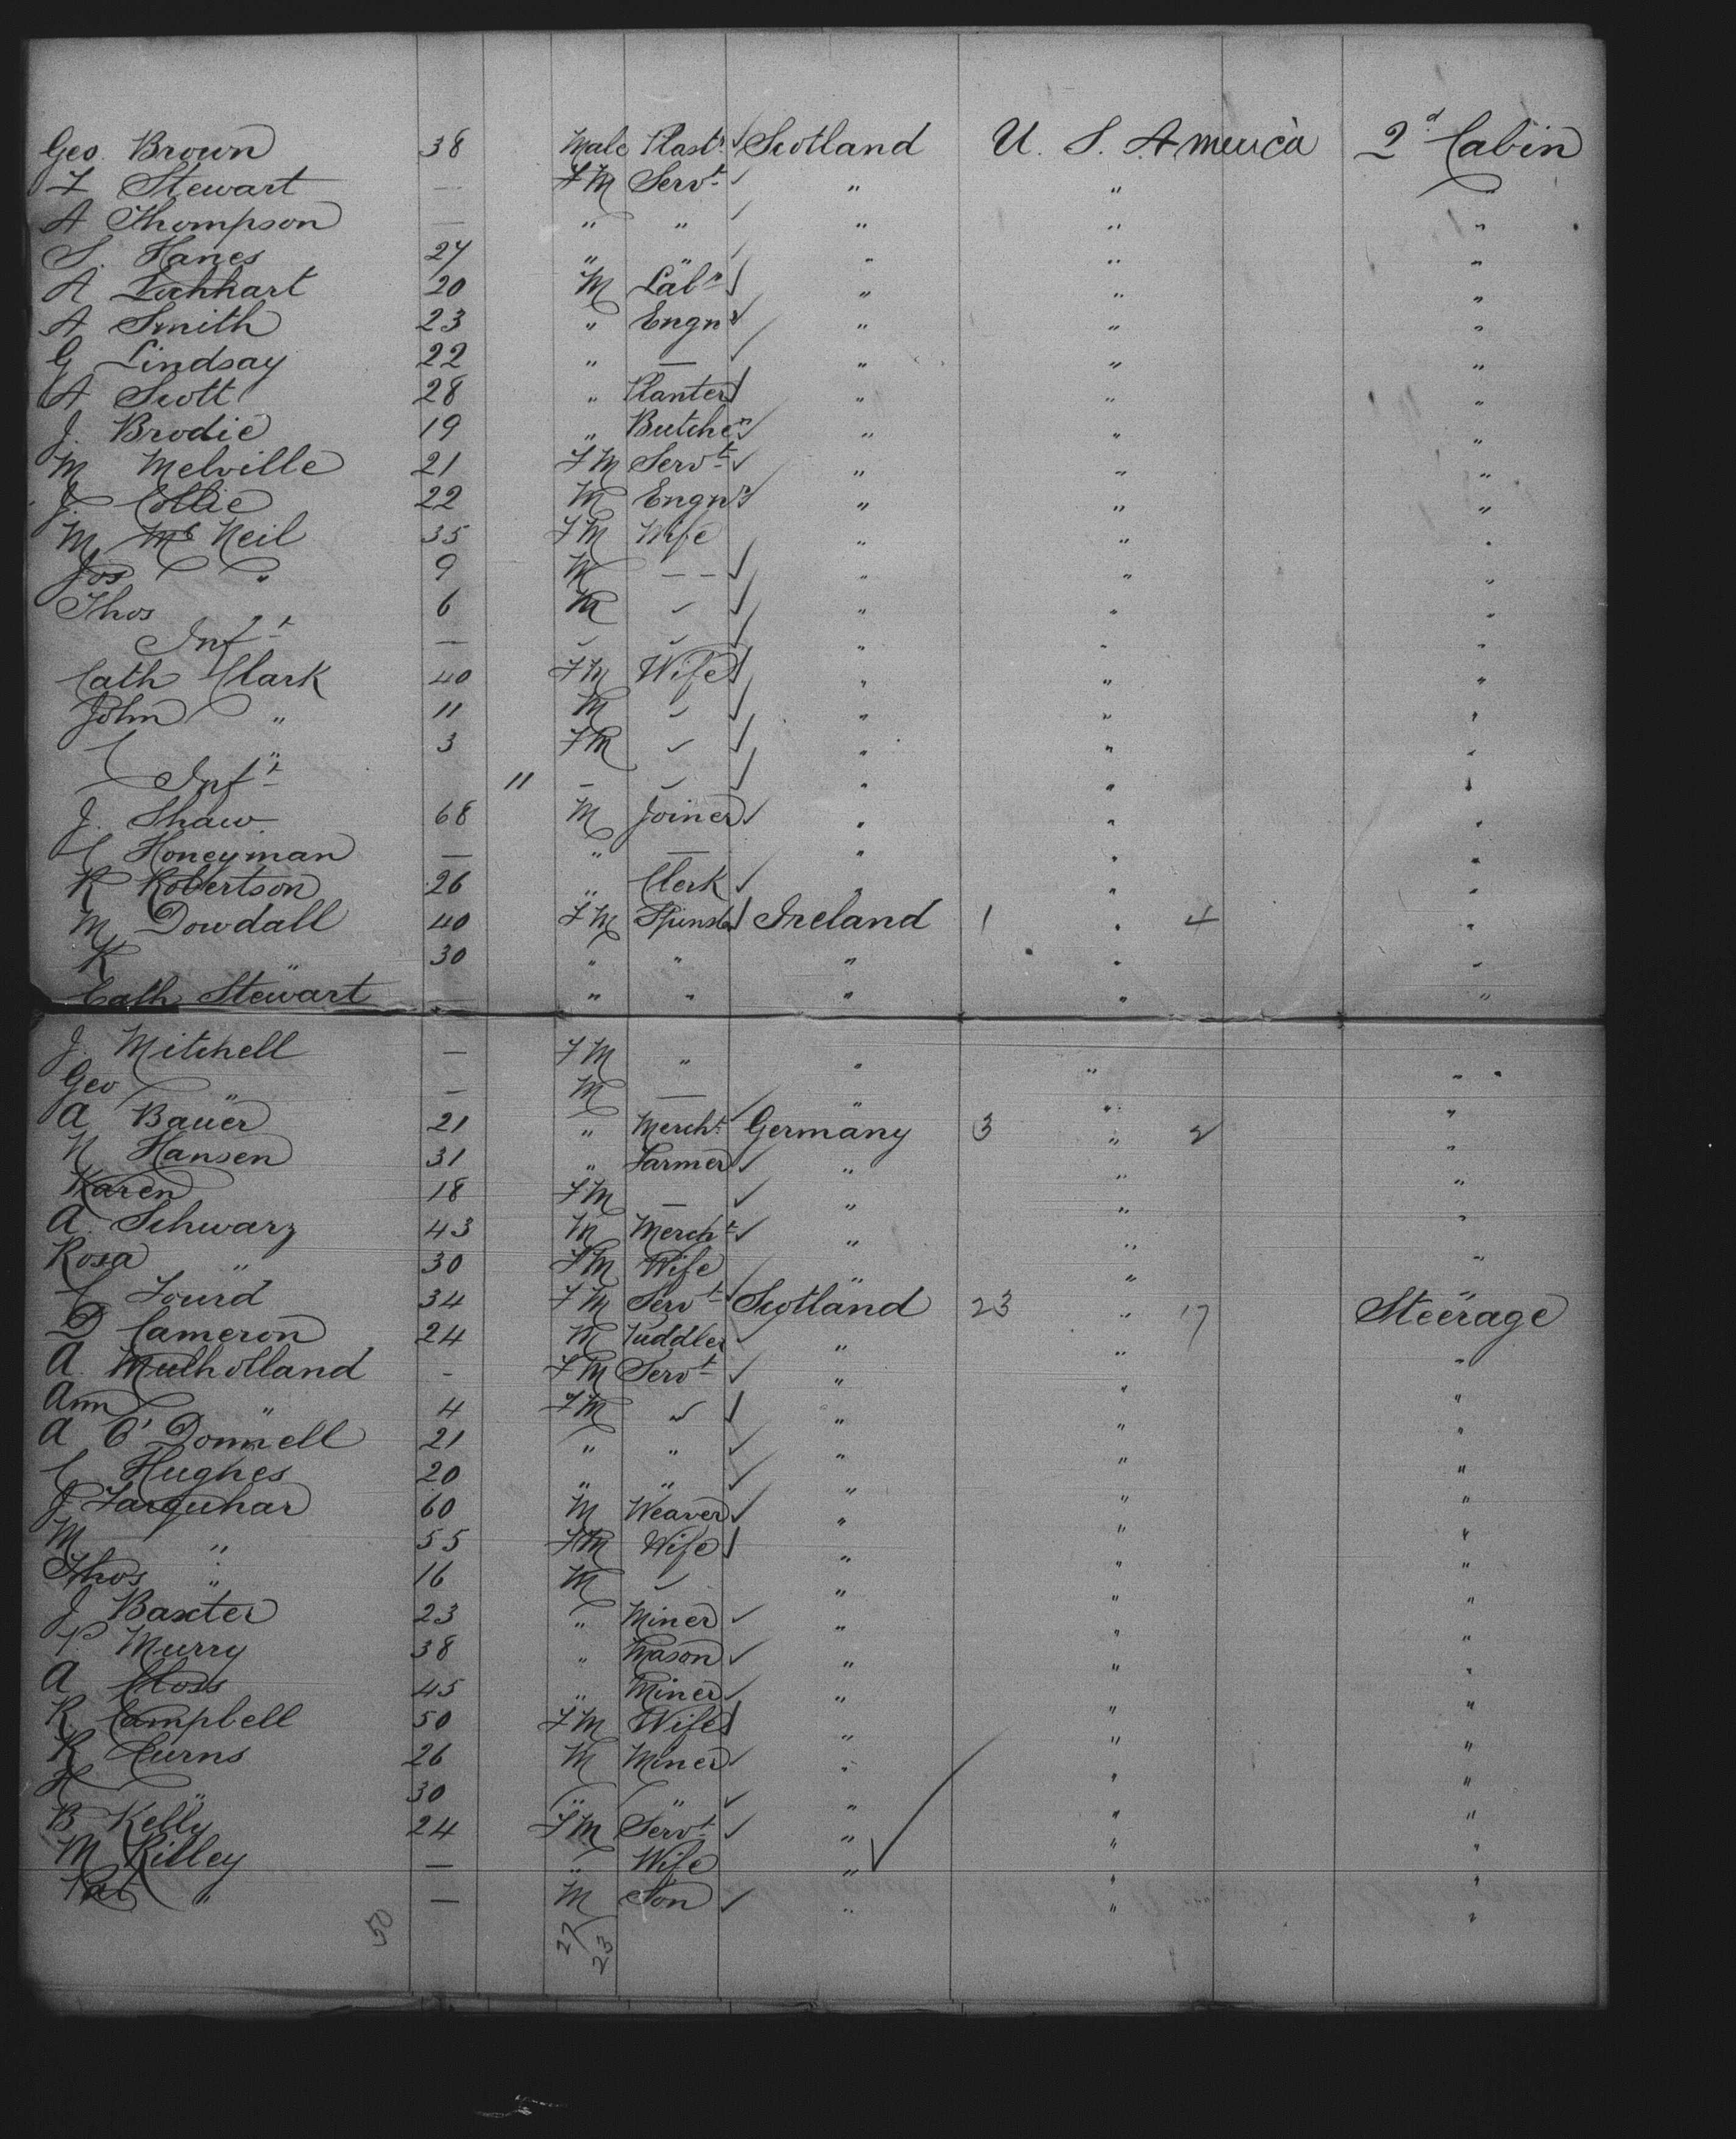 Geo. Brown 38 Male Plastr Scotland U. S. America 2d Cabin
F Stewart — FM Servt " " "
A Thompson — " " " " "
S. Hanes 27 " " " " "
A Lockhart 20 M Labr " " "
A Smith 23 " Engnr " " "
G Lindsay 22 " — " " "
A Scott 28 " Planter " " "
J. Brodie 19 " Butcher " " "
M Melville 21 FM Servt " " "
J. Collie 22 M Engnr " " "
M McNeil 35 FM Wife " " "
Jos " 9 M — — " " "
Thos 6 M " " "
Inft — " " "
Cath Clark 40 FM Wife " " "
John " 11 M " " "
C " 3 FM " " "
Inft 11 — " " "
J. Shaw 68 M Joiner " " "
C Honeyman — " — " " "
R Robertson 26 " Clerk " " "
M Dowdall 40 FM Spinster Ireland 1 " 4 "
K " 30 " " " " "
Cath Stewart — " " " " "
J. Mitchell — FM " " " "
Geo " — M — " " "
A Bauer 21 " Mercht Germany 3 " 2 "
N Hansen 31 " Farmer " " "
Karen 18 FM — " " "
A. Schwarz 43 M Mercht " " "
Rosa " 30 FM Wife " " "
C Fourd 34 FM Servt Scotland 23 " 17 Steerage
D Cameron 24 M Puddler " " "
A. Mulholland - FM Servt " " "
Ann " 4 FM " " "
A O'Donnell 21 " " " " "
C Hughes 20 " " " " "
J Farquhar 60 M Weaver " " "
M " 55 FM Wife " " "
Thos " 16 M " " "
J Baxter 23 " Miner " " "
P. Murry 38 " Mason " " "
A Closs 45 " Miner " " "
R. Campbell 50 FM Wife " " "
R Curns 26 M Miner " " "
H " 30 " " " " "
B Kelly 24 FM Servt " " "
M Rilley — " Wife " " "
Pat " — M Son " " "
50 27/23